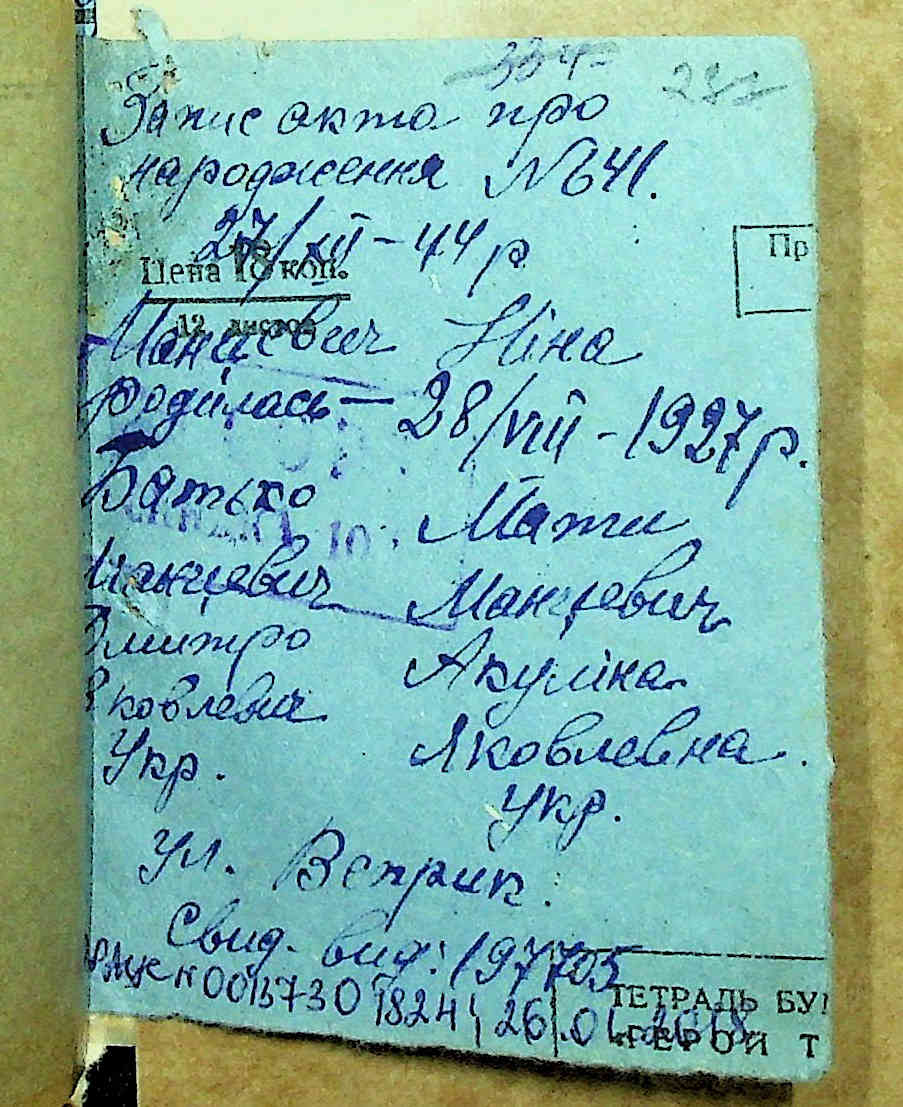 334
Запис акта про
народження № 641.
27/XII - 44 р
Цена 10 коп.
Пр
12 листов
Манцевич Ніна
родилась — 28/VIII - 1927 р.
Батько Мати
Манцевич Манцевич
Дмитро Акуліна
Яковлевич Яковлевна.
Укр. Укр.
Ул. Веприк.
Свид. вид: 197705
ТЕТРАДЬ
26.01.2018
ГЕРОИ Т